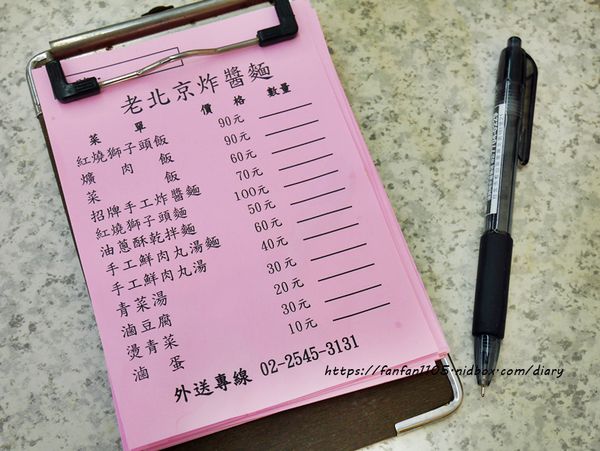 老北京炸醬麵
菜單 價格 數量
紅燒獅子頭飯 90元
爌肉飯 90元
菜飯 60元
招牌手工炸醬麵 70元
紅燒獅子頭麵 100元
油蔥酥乾拌麵 50元
手工鮮肉丸湯麵 60元
手工鮮肉丸湯 40元
青菜湯 30元
滷豆腐 20元
燙青菜 30元
滷蛋 10元
外送專線 02-2545-3131
https://fanfan1105.nidbox.com/diary